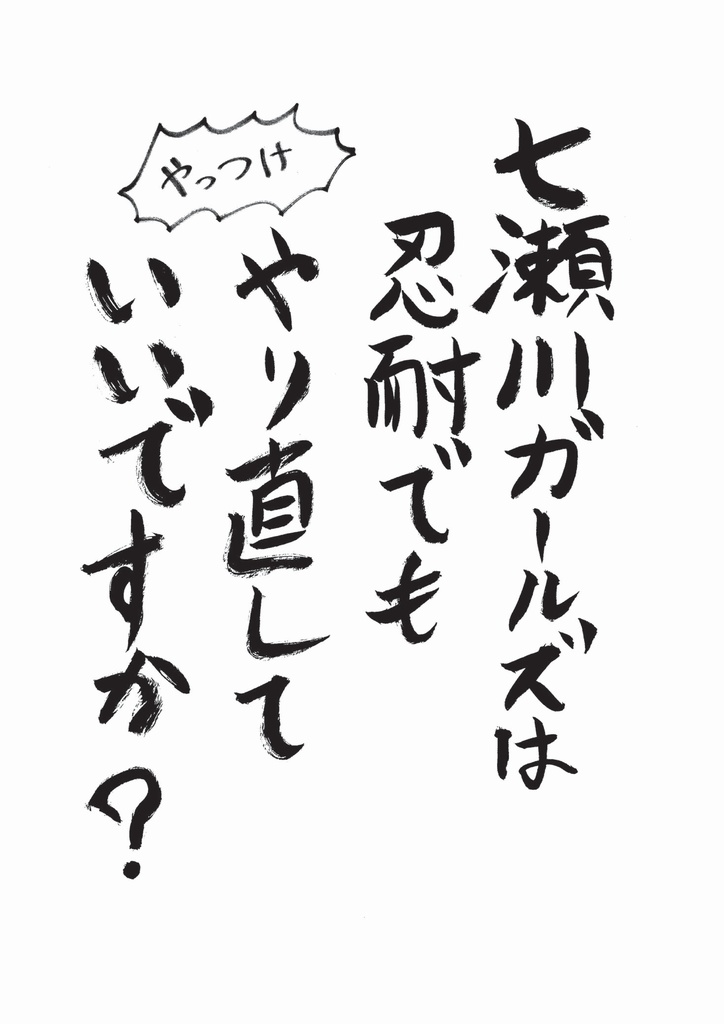 七瀬川ガールズは
忍耐でも
やり直して
いいですか？
やっつけ